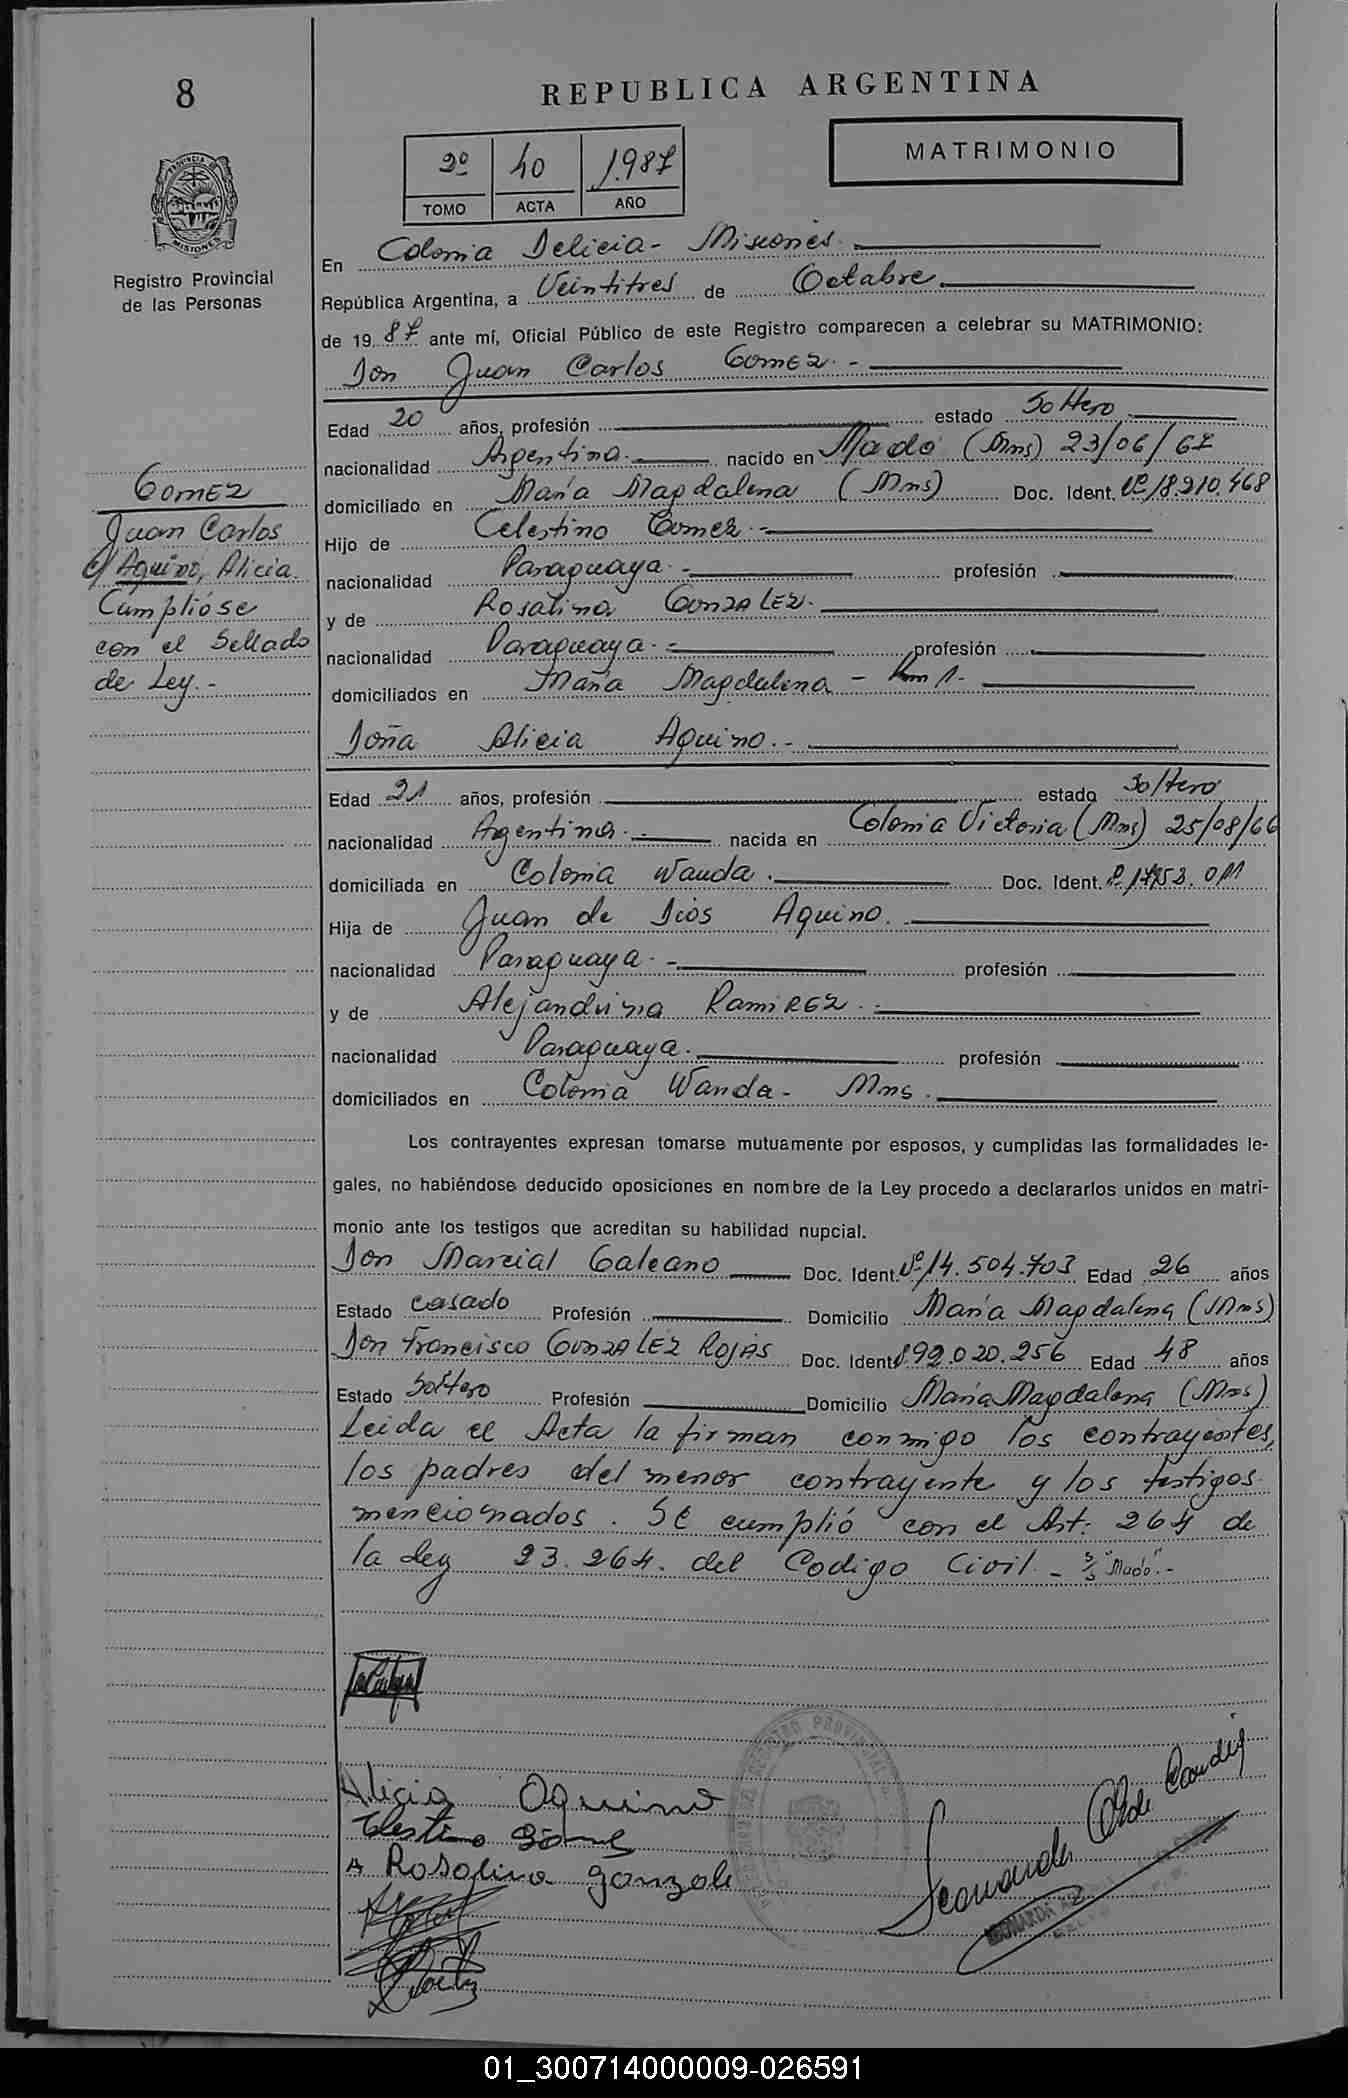 8
REPUBLICA ARGENTINA
MATRIMONIO
2º 40 1.987
TOMO ACTA AÑO
PROVINCIA DE
MISIONES
Registro Provincial
de las Personas
En Colonia Delicia - Misiones.
República Argentina, a Veintitres de Octubre
de 19 87 ante mí, Oficial Público de este Registro comparecen a celebrar su MATRIMONIO:
Don Juan Carlos GomEz. -
Edad 20 años, profesión estado Soltero
nacionalidad Argentina. nacido en Mado (Mns) 23/06/67
domiciliado en María Magdalena (Mns) Doc. Ident. Nº 18.210.468
Hijo de Celestino Gomez. -
nacionalidad Paraguaya. - profesión
y de Rosalina GonzALEz.
nacionalidad Paraguaya. - profesión
domiciliados en María Magdalena -
Gomez
Juan Carlos
c/ Aquino, Alicia.
Cumplióse
con el Sellado
de Ley. -
Doña Alicia Aquino. -
Edad 21 años, profesión estado Soltero
nacionalidad Argentina. - nacida en Colonia Victoria (Mns) 25/08/66
domiciliada en Colonia Wanda. Doc. Ident. Nº
Hija de Juan de Dios Aquino.
nacionalidad Paraguaya. - profesión
y de Alejandrina RamiREz.
nacionalidad Paraguaya. profesión
domiciliados en Colonia Wanda - Mns.
Los contrayentes expresan tomarse mutuamente por esposos, y cumplidas las formalidades le-
gales, no habiéndose deducido oposiciones en nombre de la Ley procedo a declararlos unidos en matri-
monio ante los testigos que acreditan su habilidad nupcial.
Don Marcial Galeano Doc. Ident. Nº 14.504.703 Edad 26 años
Estado casado Profesión Domicilio María Magdalena (Mns)
Don Francisco GONZALEZ ROJAS Doc. Ident. 92.020.256 Edad 48 años
Estado Soltero Profesión Domicilio María Magdalena (Mns)
Leida el Acta la firman conmigo los contrayentes,
los padres del menor contrayente y los testigos
mencionados. Se cumplió con el Art: 264 de
la Ley 23.264. del Codigo Civil. - S/S "Mado". -
Alicia Aquino
Celestino Gomez
A Rosalina gonzale
REGISTRO PROVINCIAL
01_300714000009-026591